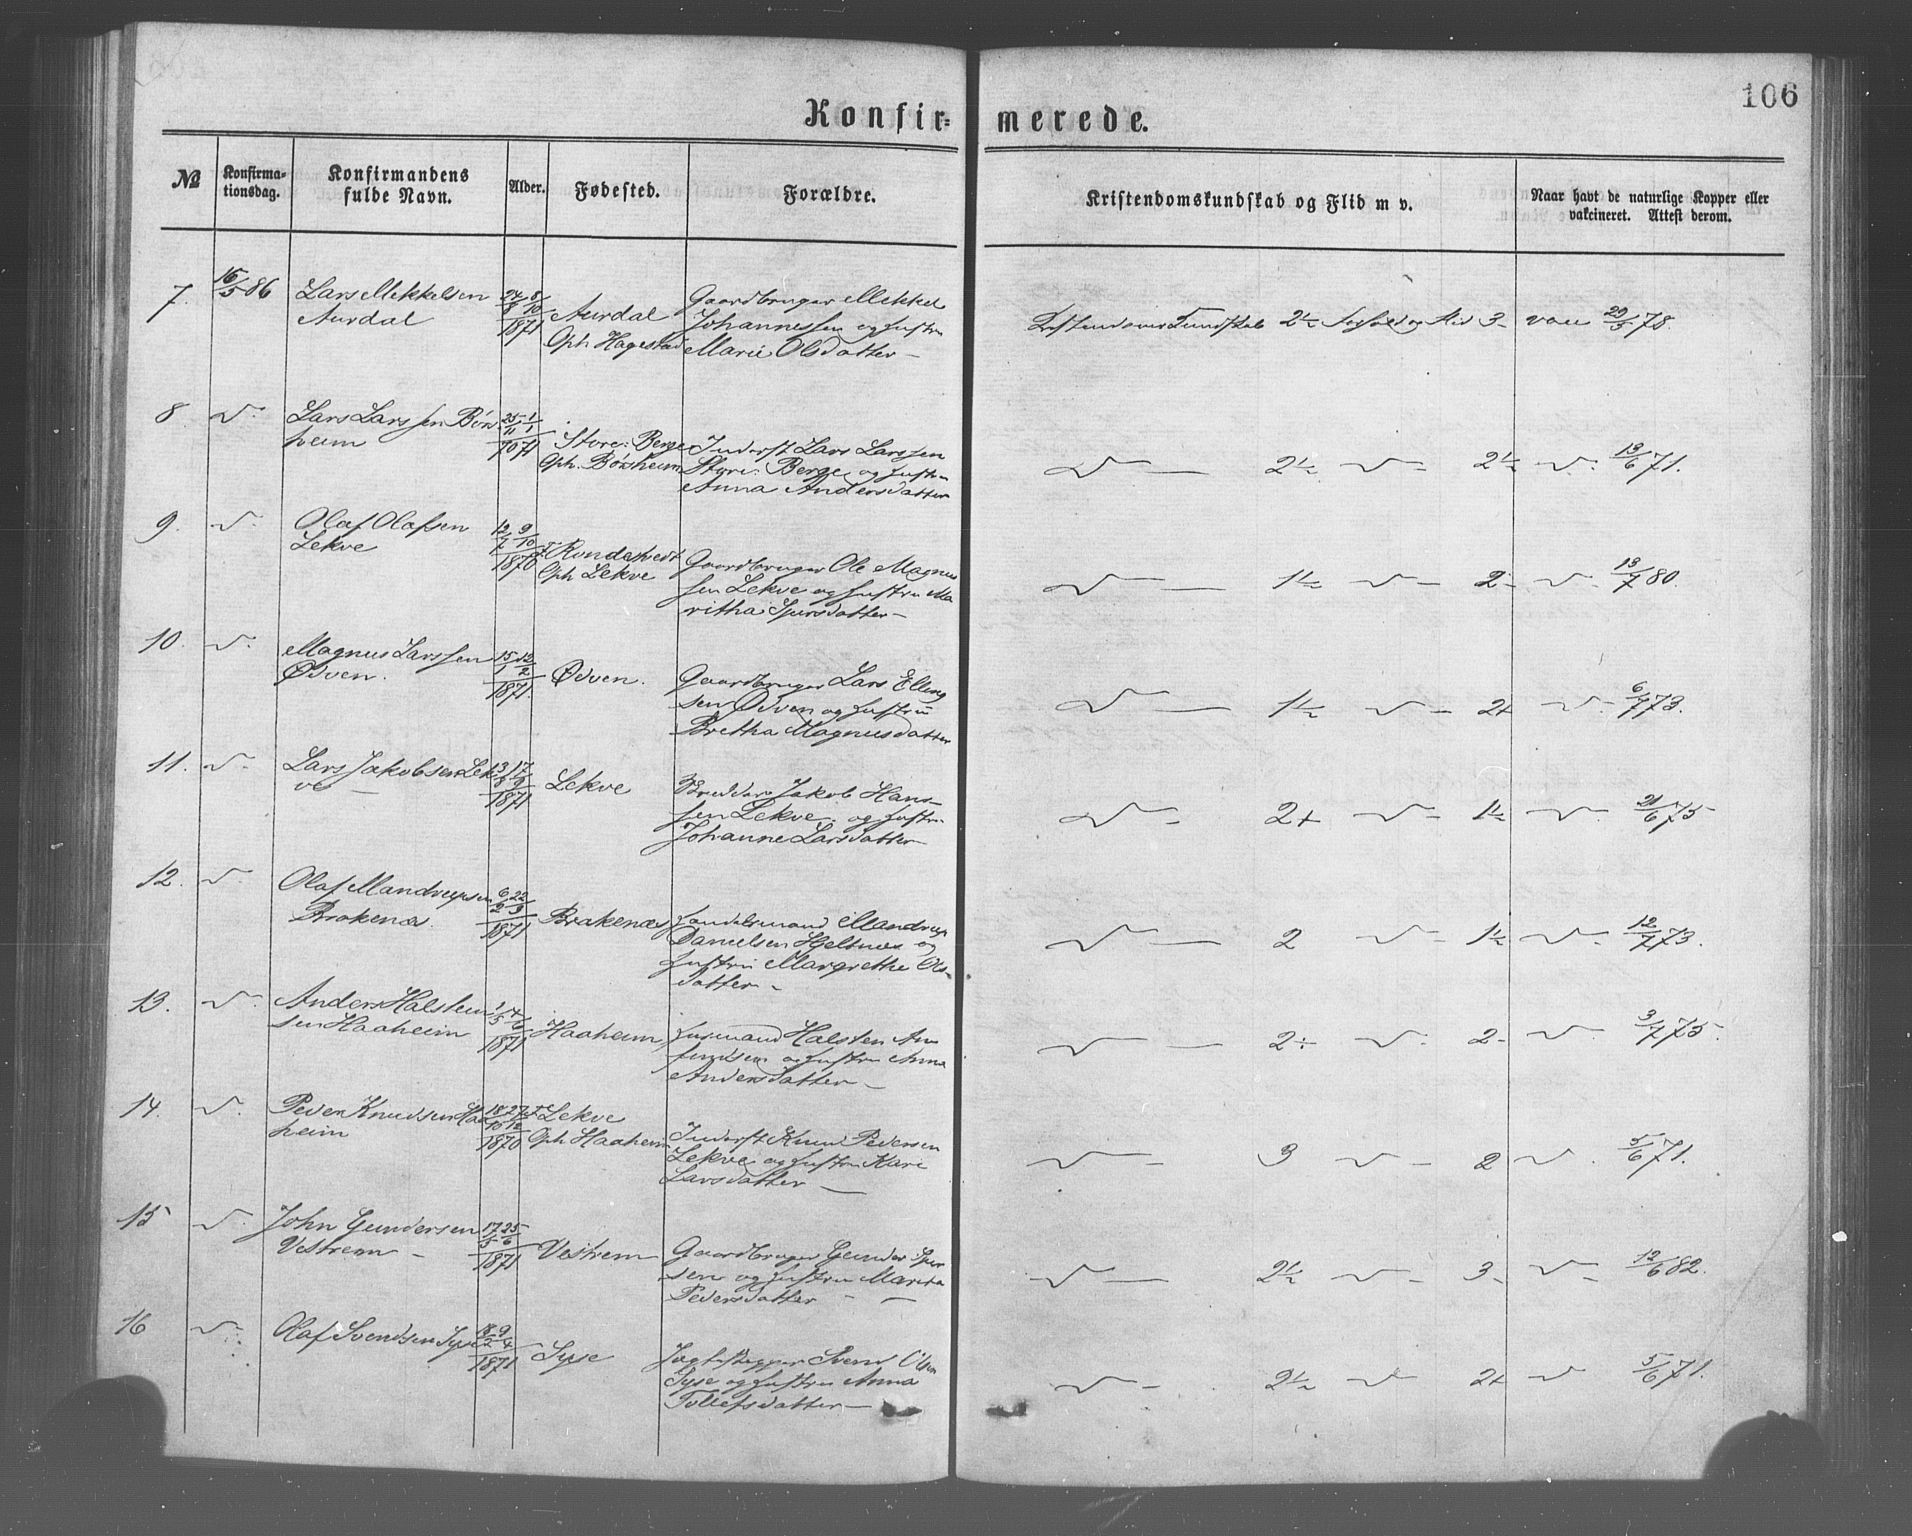 106
Konfir= merede.
№
Konfirma-
tionsdag.
Konfirmandens
fulde Navn.
Alder.
Fødested.
Forældre.
Kristendomskundskab og Flid m v.
Naar havt de naturlige Kopper eller
vakcineret. Attest derom.
7.
16/5 86
Lars Mekkelsen
Aurdal
24/8 8/10
1871
Aurdal
Oph Hagestad
Gaardbruger Mekkel
Johannessen og Hustru
Marie Olsdatter —
Kristendomskundskab 2½ Forhold og Flid 3- vac 29/5 78.
8
Lars Larssen Børs
heim
25/11 1/1
70 71
Store: Berge
Oph. Børsheim
Inderst Lars Larssen
Store: Berge og Hustru
Anna Andersdatter
2½ 2½ 13/6 71.
9.
Olaf Olafsen
Lekve
12/7 9/10
1870
F Rondestvedt
Oph Lekve
Gaardbruger Ole Magnus
sen Lekve og Hustru Ma
ritha Sjursdatter —
1½ 2- 13/7 80.
10.
Magnus Larssen
Ødven.
15/1 12/2
1871.
Ødven.
Gaardbruger Lars Elling
sen Ødven og Hustru
Bretha Magnusdatter
1½ 2+ 6/7 73.
11.
Lars Jakobsen Lek
ve
13/8 17/9
1871
Lekve
Jakob Hans-
sen Lekve og Hustru
Johanne Larsdatter —
2+ 1½ 21/6 75
12.
Olaf Mandrupsen
Brakenæs.
6/2 22/3
1871
Brakenæs
Handelsmand Mandrup
Danielsen Hjeltnæs og
Hustru Margrethe Ols-
datter -
2 1½ 12/7 73.
13.
Anders Halsten
sen Haaheim
1/5 4/6
1871
Haaheim,
Husmand Halsten Am
undsen og Hustru Anna
Andersdatter —
2÷ 2- 3/7 75.
14.
Peder Knudsen Haa
heim
18/10 27/12
1870
F Lekve
Oph Haaheim
Inderst Knud Pedersen
Lekve og Hustru Kari
Larsdatter —
3 2 5/6 71.
15
John Gundersen
Vestrem -
17/5 25/6
1871
Vestrem
Gaardbruger Gunder Sjur
sen og Hustru Marita
Pedersdatter - —
2½ 3- 12/6 82.
16
Olaf Svendsen Syse
18/2 9/4
1871
Syse
Jagteskipper Svend Olsen
Syse og Hustru Anna
Tollefsdatter —
2½ 2+ 5/6 71.